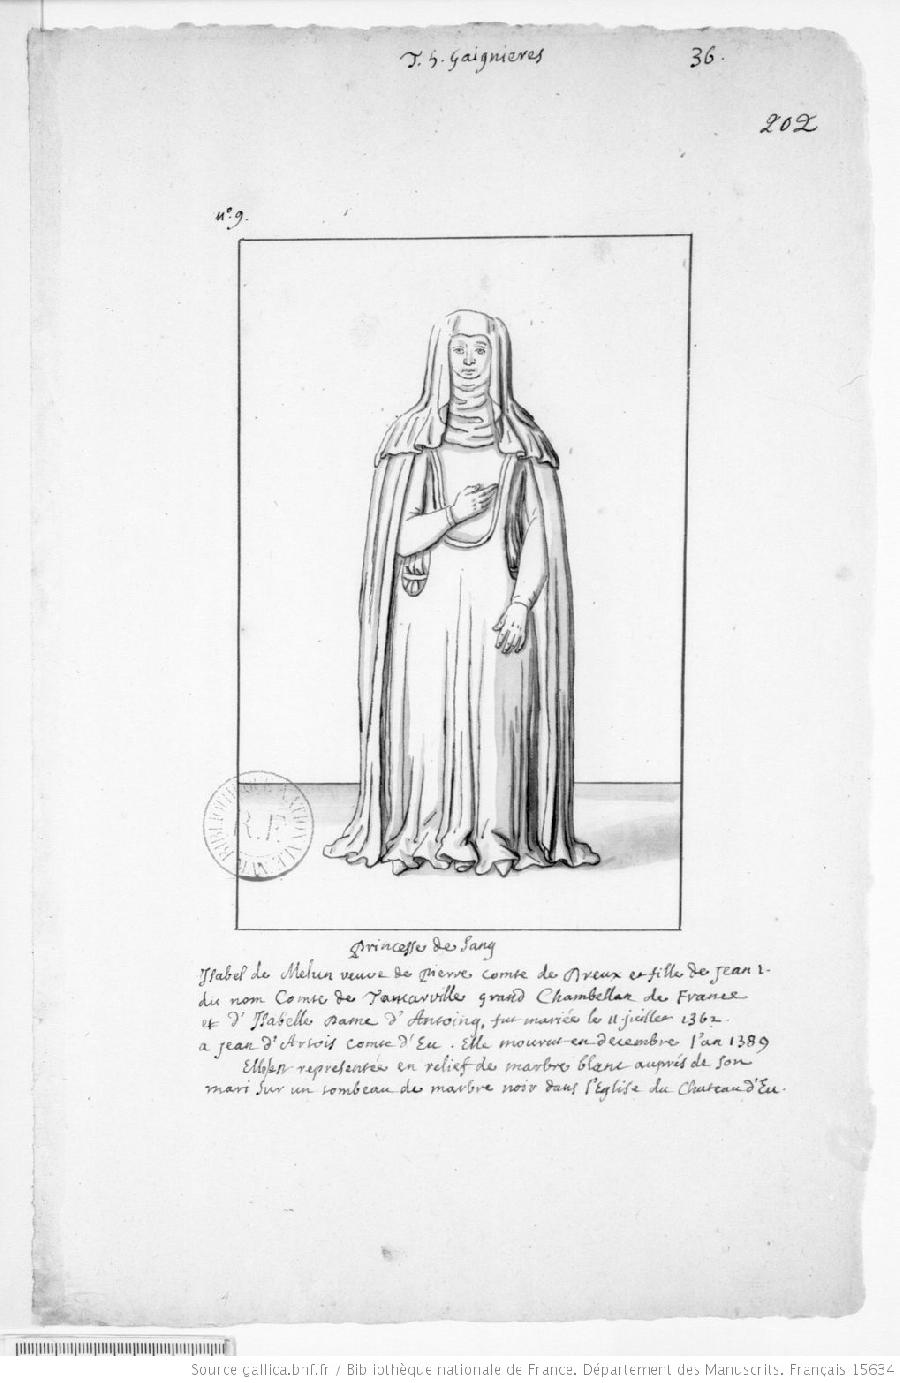 T. 5. Gaignieres 36.
202
nº. 9.
BIBLIOTHEQUE NATIONALE
R.F.
Princesse de Sang
Isabel de Melun veuve de Pierre Comte de Dreux et fille de Jean 1.
du nom Comte de Tancarville grand Chambellan de France
et d'Isabelle Dame d'Antoing, fut mariée le 11 juillet 1362
a Jean d'Artois Comte d'Eu. Elle mourut en decembre l'an 1389
Elle est representée en relief de marbre blanc auprés de son
mari sur un tombeau de marbre noir dans l'Eglise du Chateau d'Eu.
Source gallica.bnf.fr / Bibliothèque nationale de France. Département des Manuscrits. Français 15634